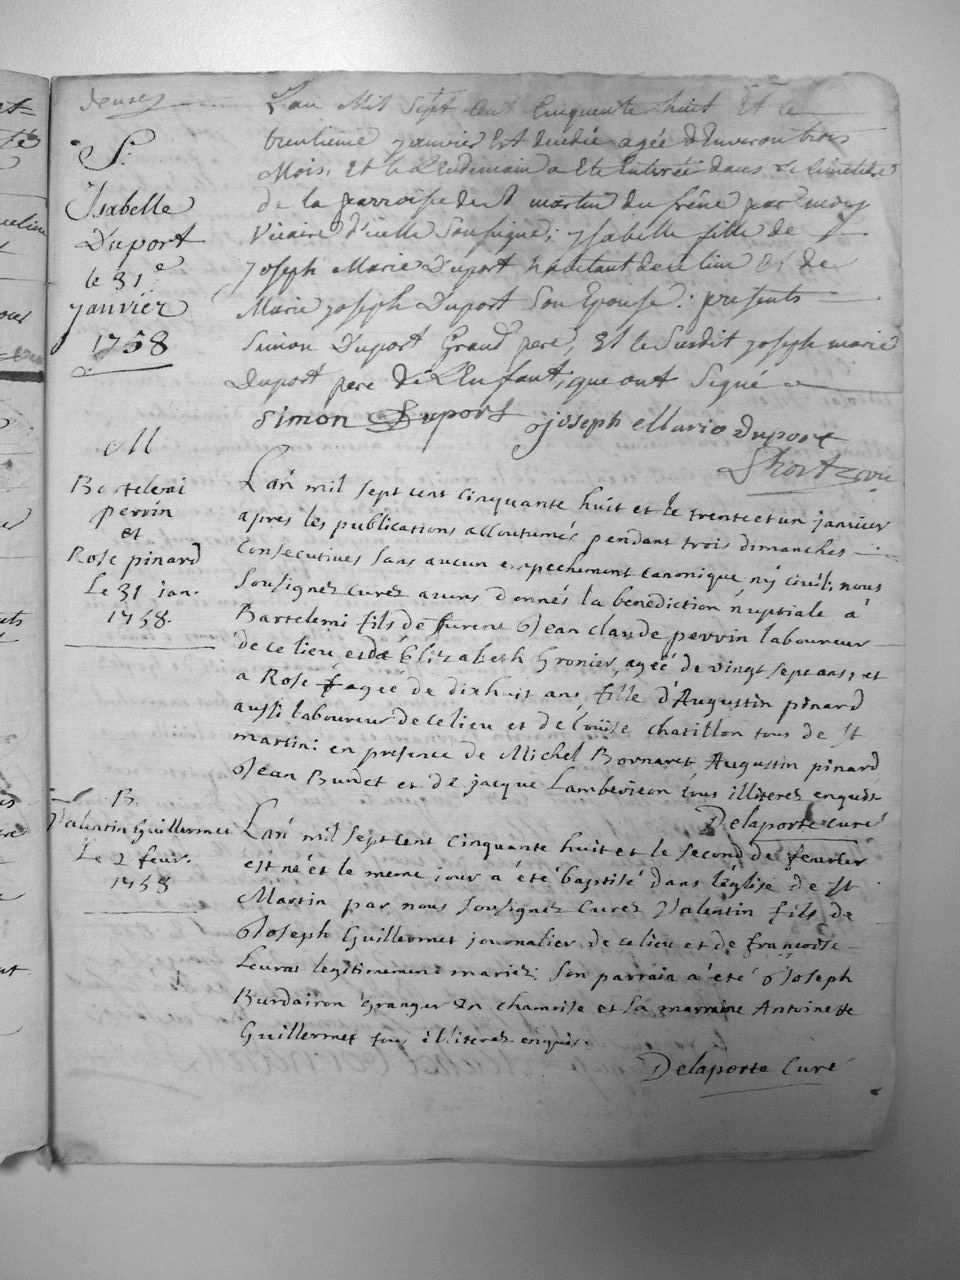 S.
Isabelle
Duport
le 31e
janvier
1758
L'an Mil Sept Cent Cinquante huit Et le
trentieme janvier Est decedée agée d'Environ trois
Mois, Et le Lendemain a Eté Enterrée dans le Cimetiere
de la parroisse de St martin du frêne par moy
Vicaire d'icelle Soussigné; ysabelle fille de
Joseph Marie Duport habitant de ce lieu Et de
Marie joseph Duport Son Epouse: presents
Simon Duport Grand pere, Et le Susdit joseph marie
Duport pere de L'Enfant, que ont Signé
Simon Duport joseph Marie duport
M
Bartelemi
perrin
et
Rose pinard
Le 31 jan.
1758.
L'an mil sept cent cinquante huit et le trente et un janvier
apres les publications accoutumés pendant trois dimanches
Consecutives sans aucun empechement canonique ny civil; nous
Soussignez curez avons donnés la benediction nuptiale à
Bartelemi fils de furent Jean claude perrin laboureur
de ce lieu et de Elizabeth Gronier, agéé de vingt sept ans, et
a Rose agéé de dix huit ans, fille d'Augustin pinard
aussi laboureur de ce lieu et de Louise chatillon tous de St
martin: en presence de Michel Bornaret Augustin pinard
Jean Burdet et de jacque tous illiterez enquis
Delaporte curé
B.
Valentin Guillermet
Le 2 feur.
1758
L'an mil sept cent cinquante huit et le second de feurier
est né et le meme jour a été baptisé dans l'église de St
Martin par nous soussignez Curez Valentin fils de
Joseph Guillermet journalier de ce lieu et de francoise
Leurat legitimement mariez: son parrain a été Joseph
Burdairon Granger En chamoise et sa marraine Antoinette
Guillermet tous illiterez enquis.
Delaporte Curé